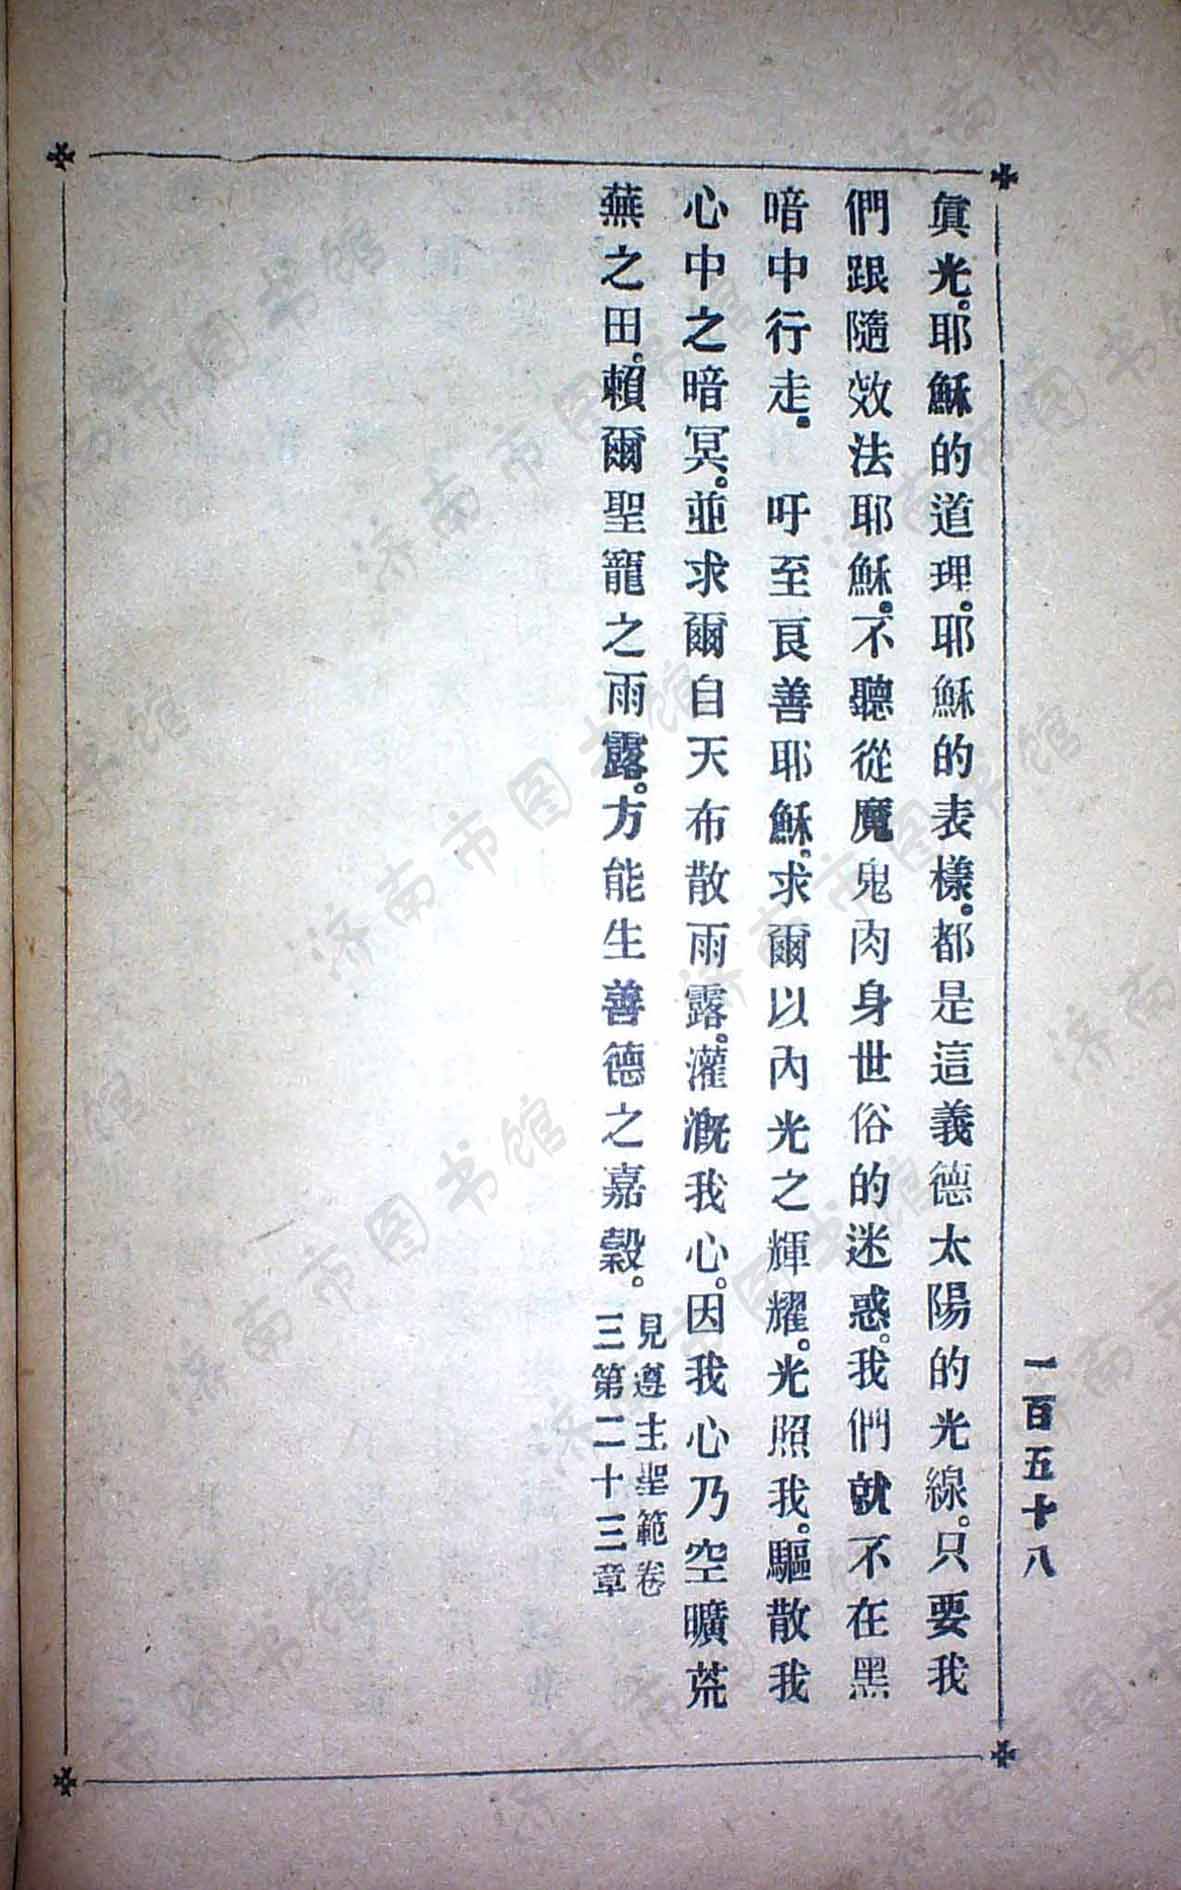 眞光。耶穌的道理。耶穌的表樣。都是這義德太陽的光線。只要我
們跟隨效法耶穌。不聽從魔鬼肉身世俗的迷惑。我們就不在黑
暗中行走。 吁至良善耶穌。求爾以內光之輝耀。光照我。驅散我
心中之暗冥。並求爾自天布散雨露。灌漑我心。因我心乃空曠荒
蕪之田。賴爾聖寵之雨露。方能生善德之嘉穀。
見遵主聖範卷
三第二十三章
一百五十八
济南市图书馆